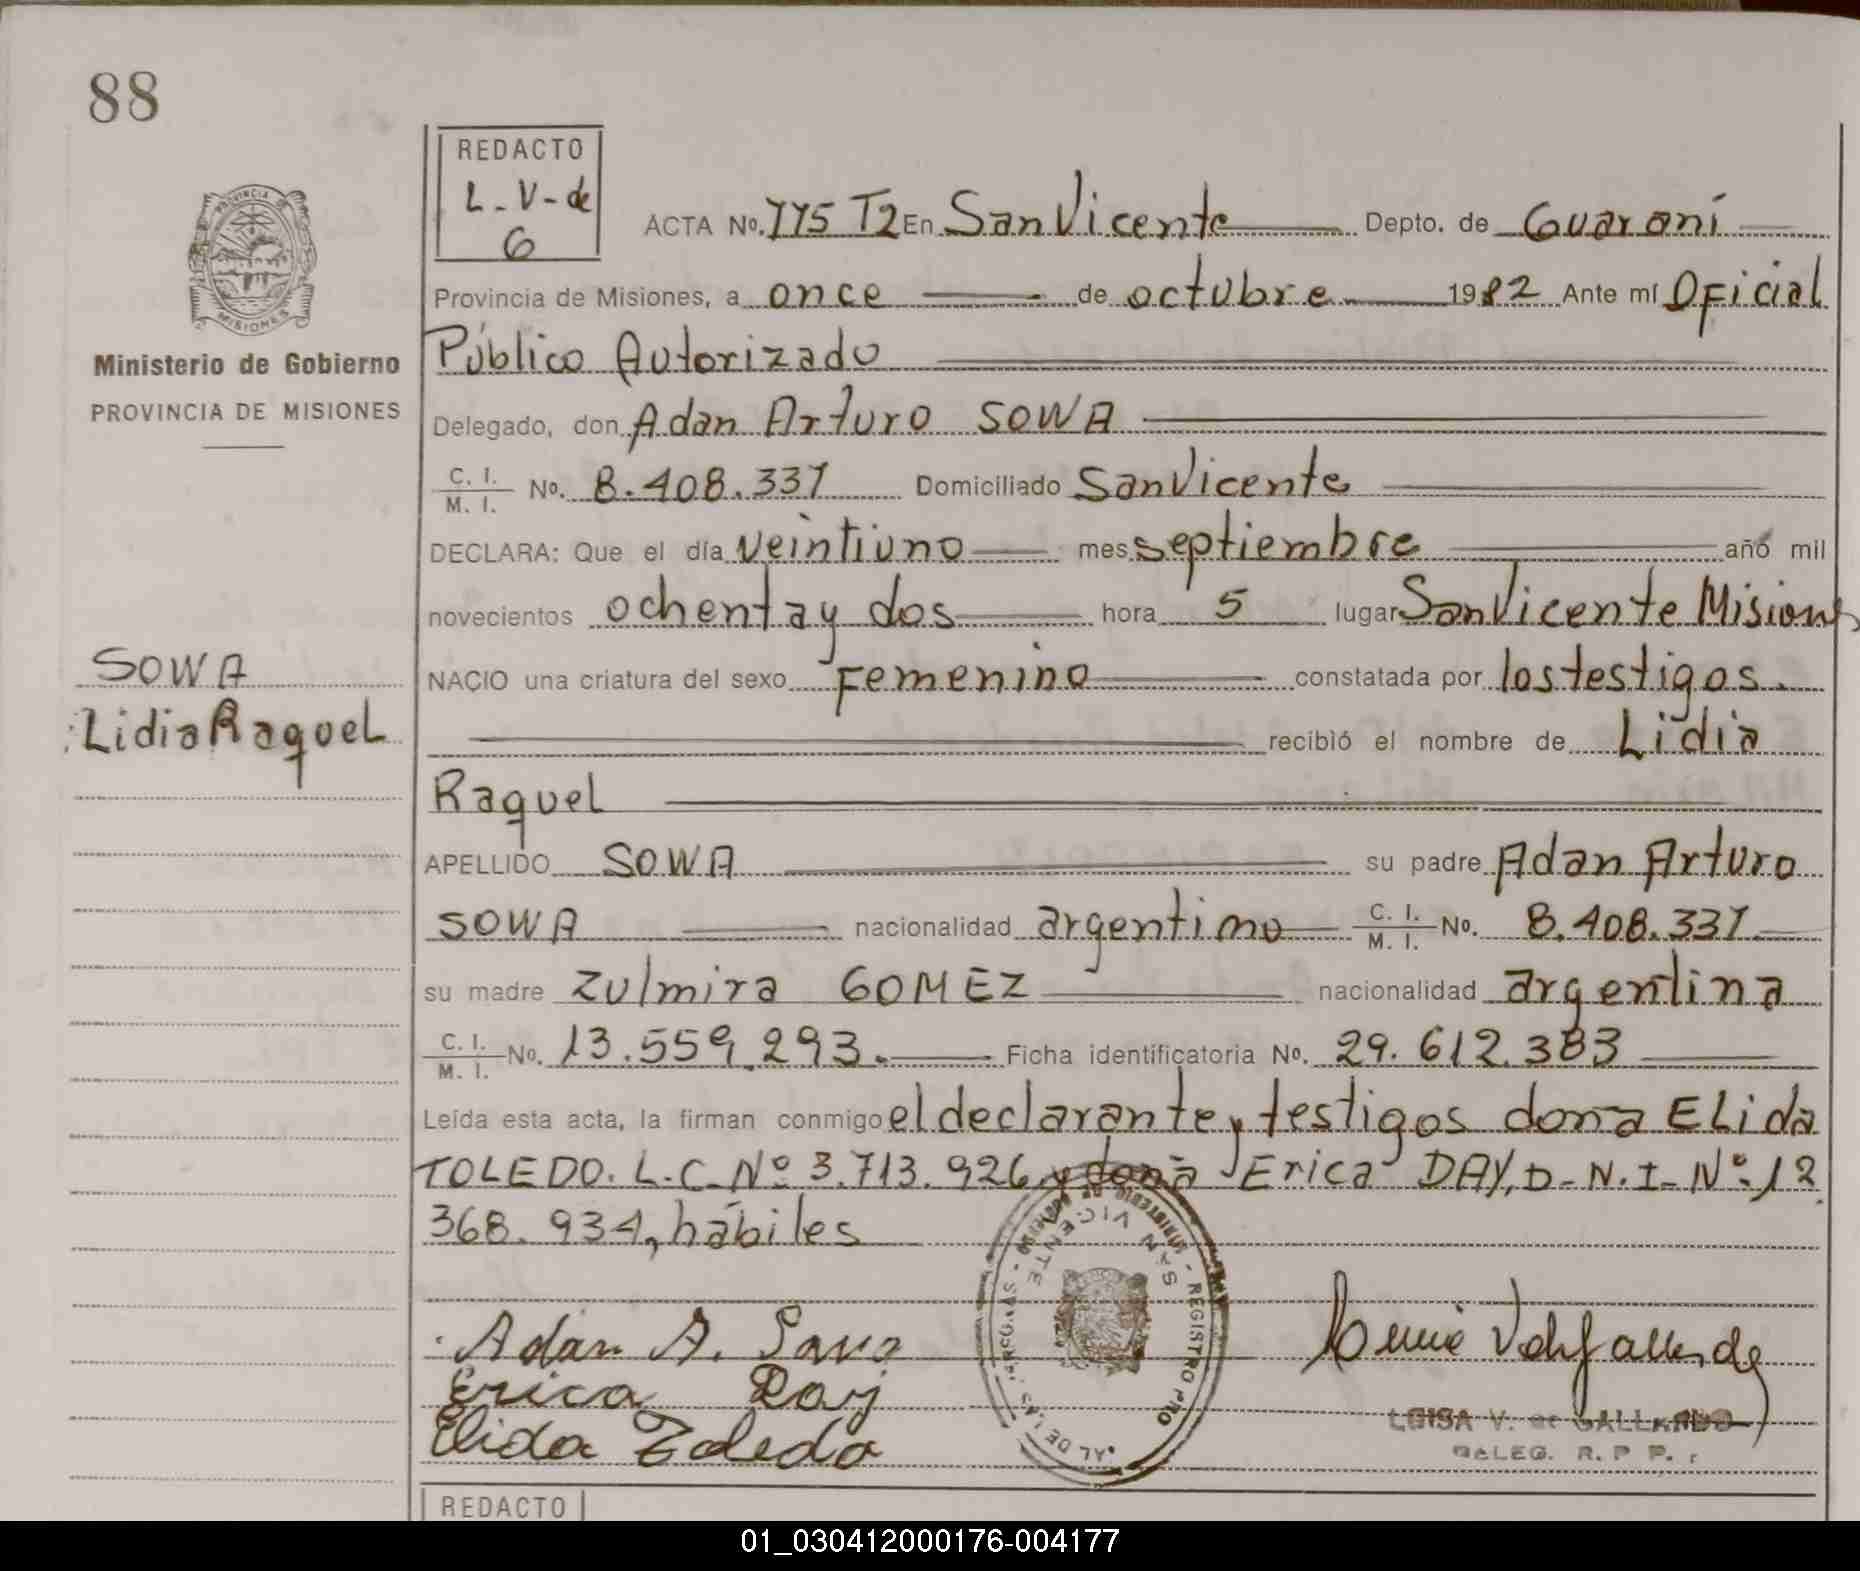 88
REDACTO
L-V-de
G
ACTA No. 775 T2 En San Vicente Depto. de Guaraní
Provincia de Misiones, a once de octubre 1982 Ante mí Oficial
Público Autorizado
Delegado, don Adan Arturo SOWA
C. I. / M. I. No. 8.408.337 Domiciliado San Vicente
DECLARA: Que el día veintiuno mes septiembre año mil
novecientos ochenta y dos hora 5 lugar San Vicente Misiones
NACIO una criatura del sexo Femenino constatada por los testigos.
recibió el nombre de Lidia
Raquel
APELLIDO SOWA su padre Adan Arturo
SOWA nacionalidad argentino C. I. / M. I. No. 8.408.337
su madre Zulmira GOMEZ nacionalidad argentina
C. I. / M. I. No. 13.559.293. Ficha identificatoria No. 29.612.383
Leída esta acta, la firman conmigo el declarante y testigos doña ELida
TOLEDO. L.C. Nº 3.713.926 y doña Erica DAY, D-N.I-Nº 12
368.934, hábiles
PROVINCIA DE
MISIONES
Ministerio de Gobierno
PROVINCIA DE MISIONES
SOWA
Lidia Raquel
Adan A. Sova
Erica Day
Elida Toledo
SAN VICENTE
MINISTERIO DE GOBIERNO
REGISTRO PRO
AL DE LAS PERSONAS
LUISA V. de GALLARDO
DELEG. R. P P.
REDACTO
01_030412000176-004177